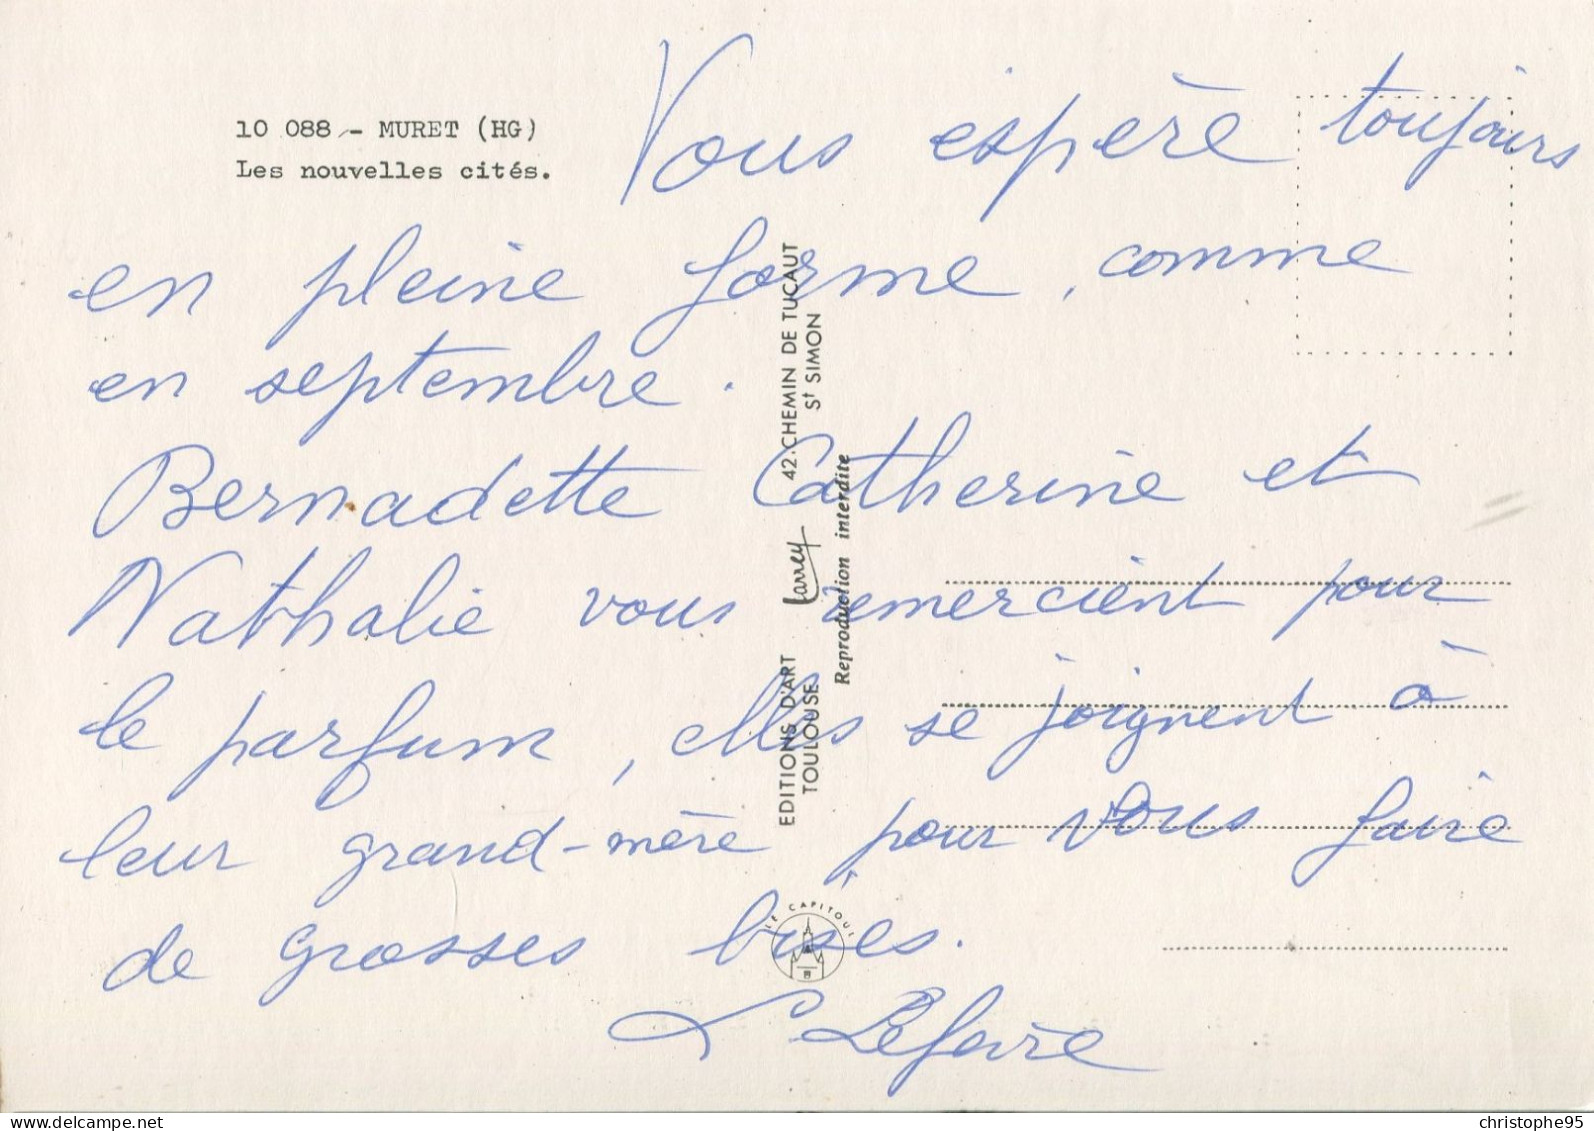 10 088 - MURET (HG)
Les nouvelles cités.
Vous espère toujours
en pleine forme, comme
en septembre.
Bernadette Catherine et
Nathalie vous remercient pour
le parfum, elles se joignent à
leur grand-mère pour vous faire
de grosses bises.
EDITIONS D'ART Larrey 42, CHEMIN DE TUCAUT
TOULOUSE St SIMON
Reproduction interdite
LE CAPITOUL
www.delcampe.net
christophe95